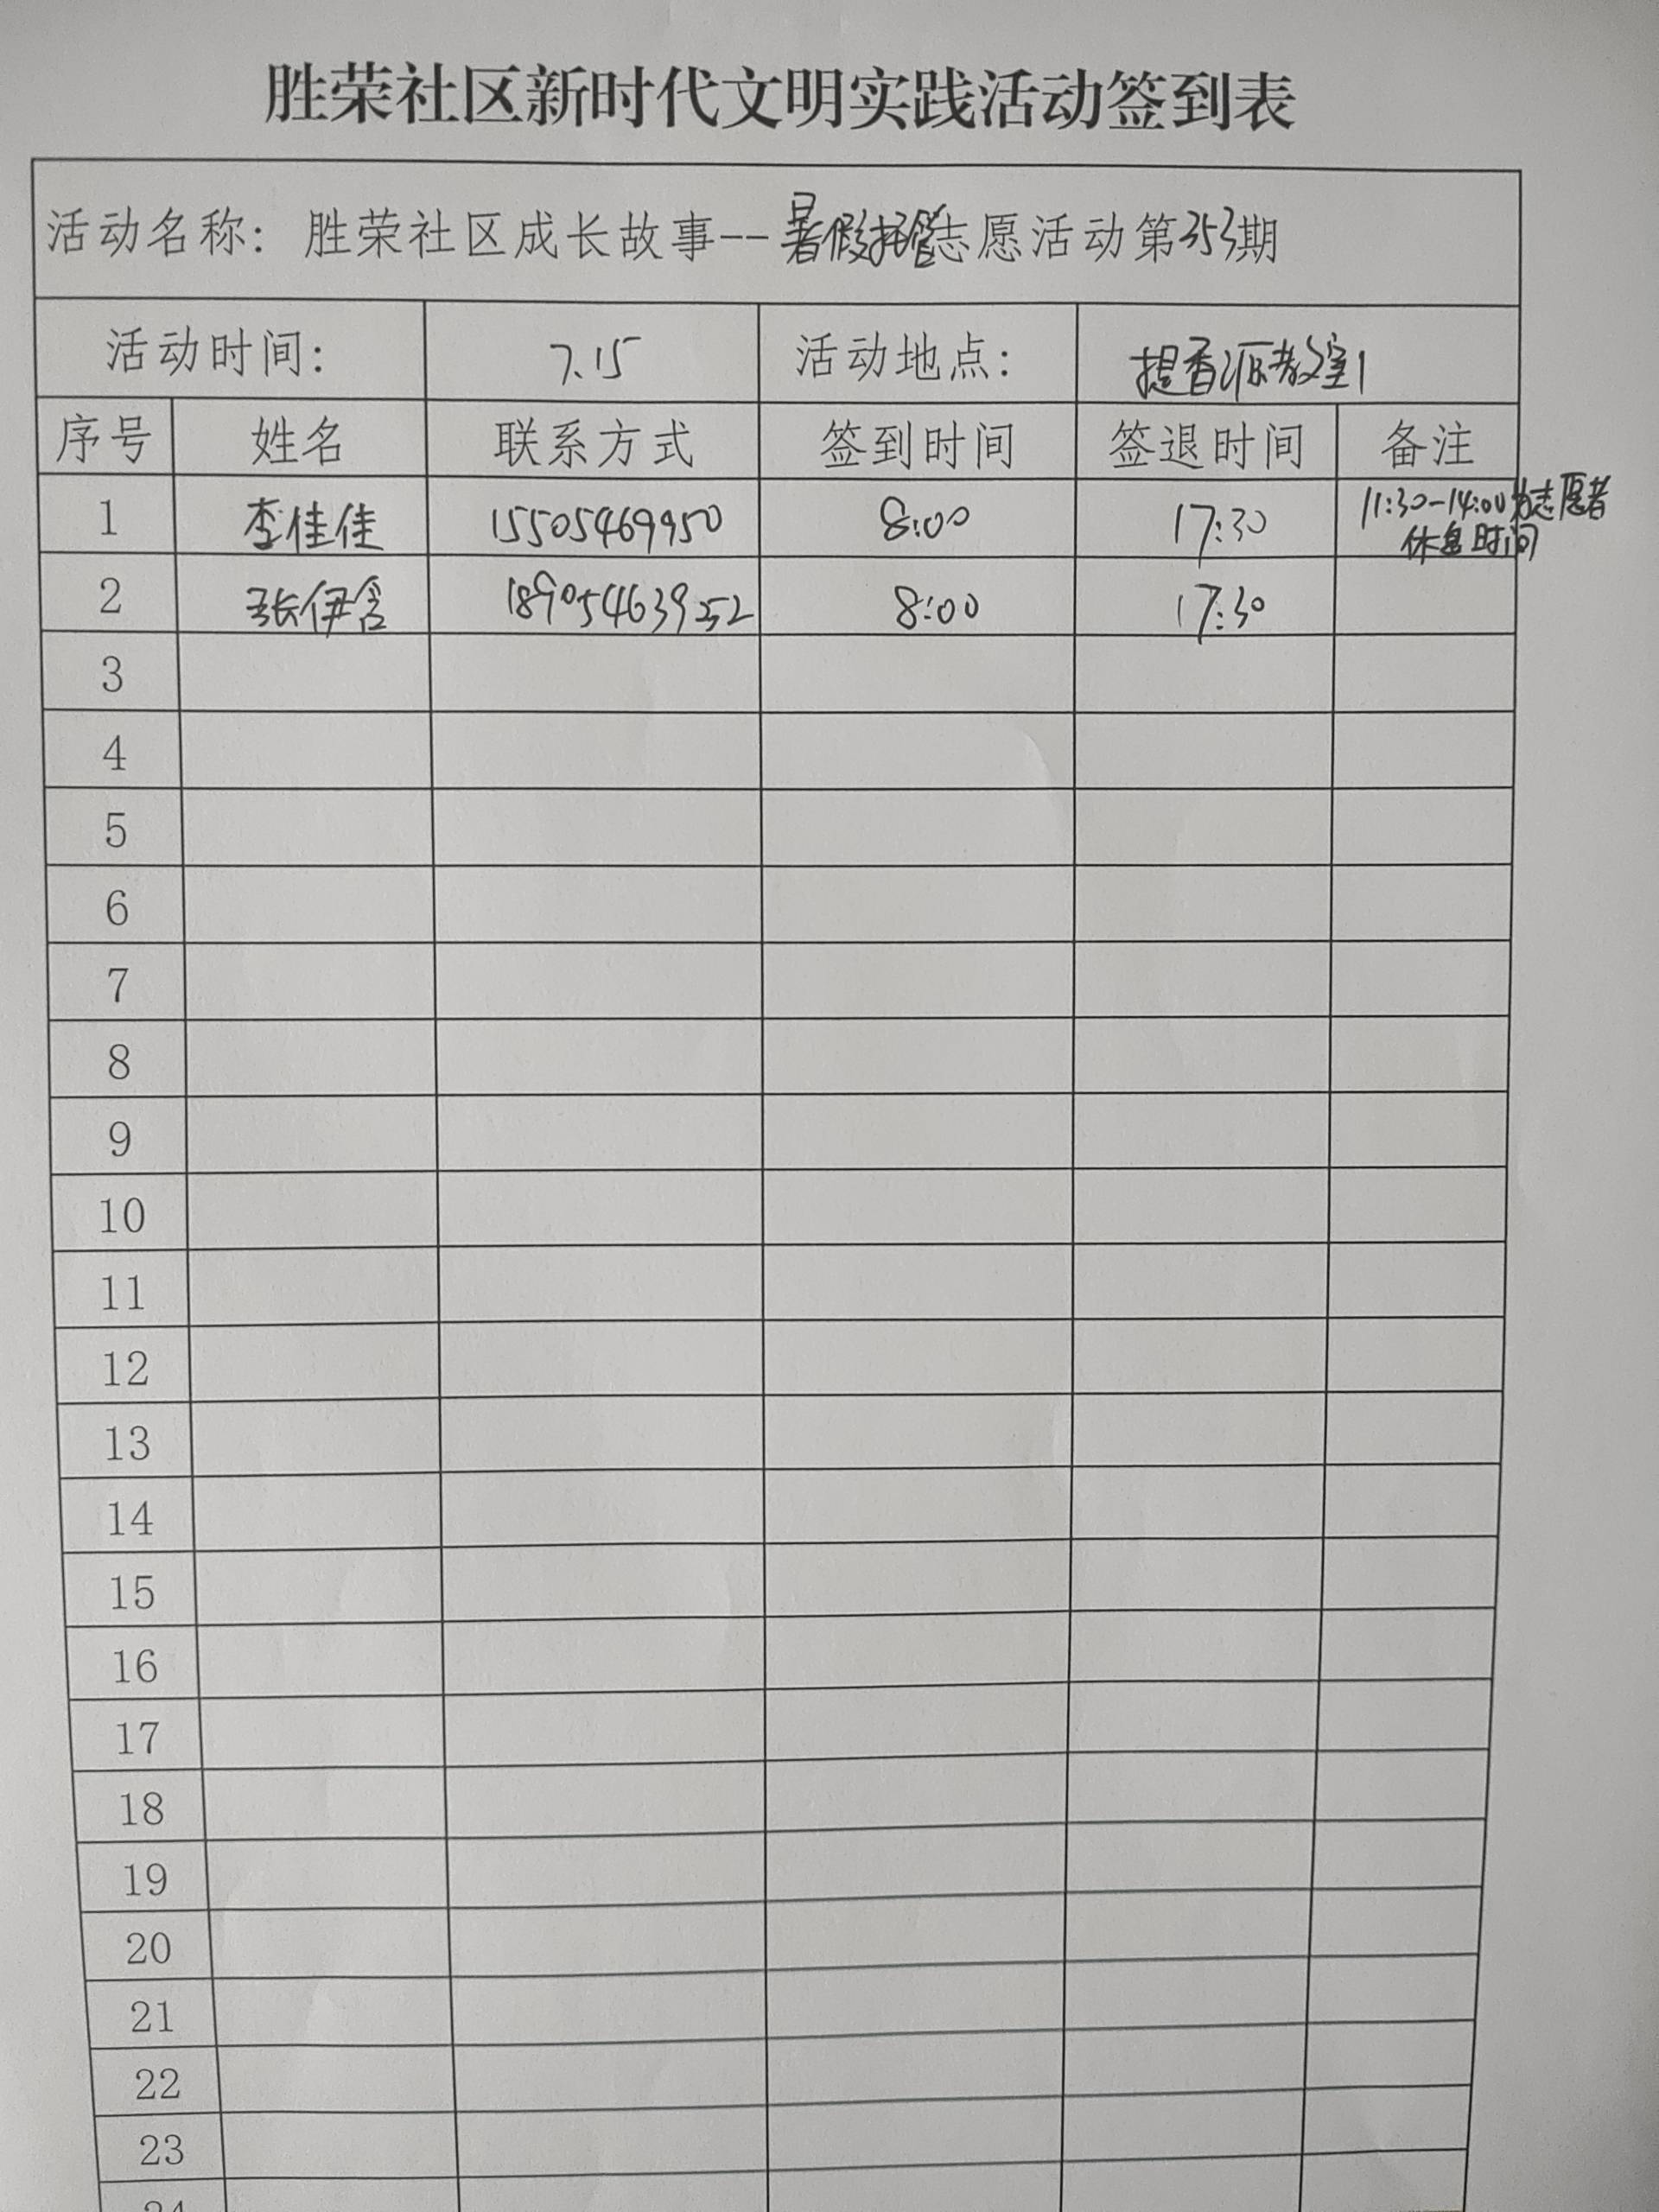 胜荣社区新时代文明实践活动签到表
活动名称：胜荣社区成长故事--暑假托管志愿活动第353期
活动时间： 7.15 活动地点： 提香派教室1
序号 姓名 联系方式 签到时间 签退时间 备注
1 李佳佳 15505469950 8:00 17:30 11:30-14:00为志愿者
休息时间
2 张伊含 18905463952 8:00 17:30
3
4
5
6
7
8
9
10
11
12
13
14
15
16
17
18
19
20
21
22
23
24